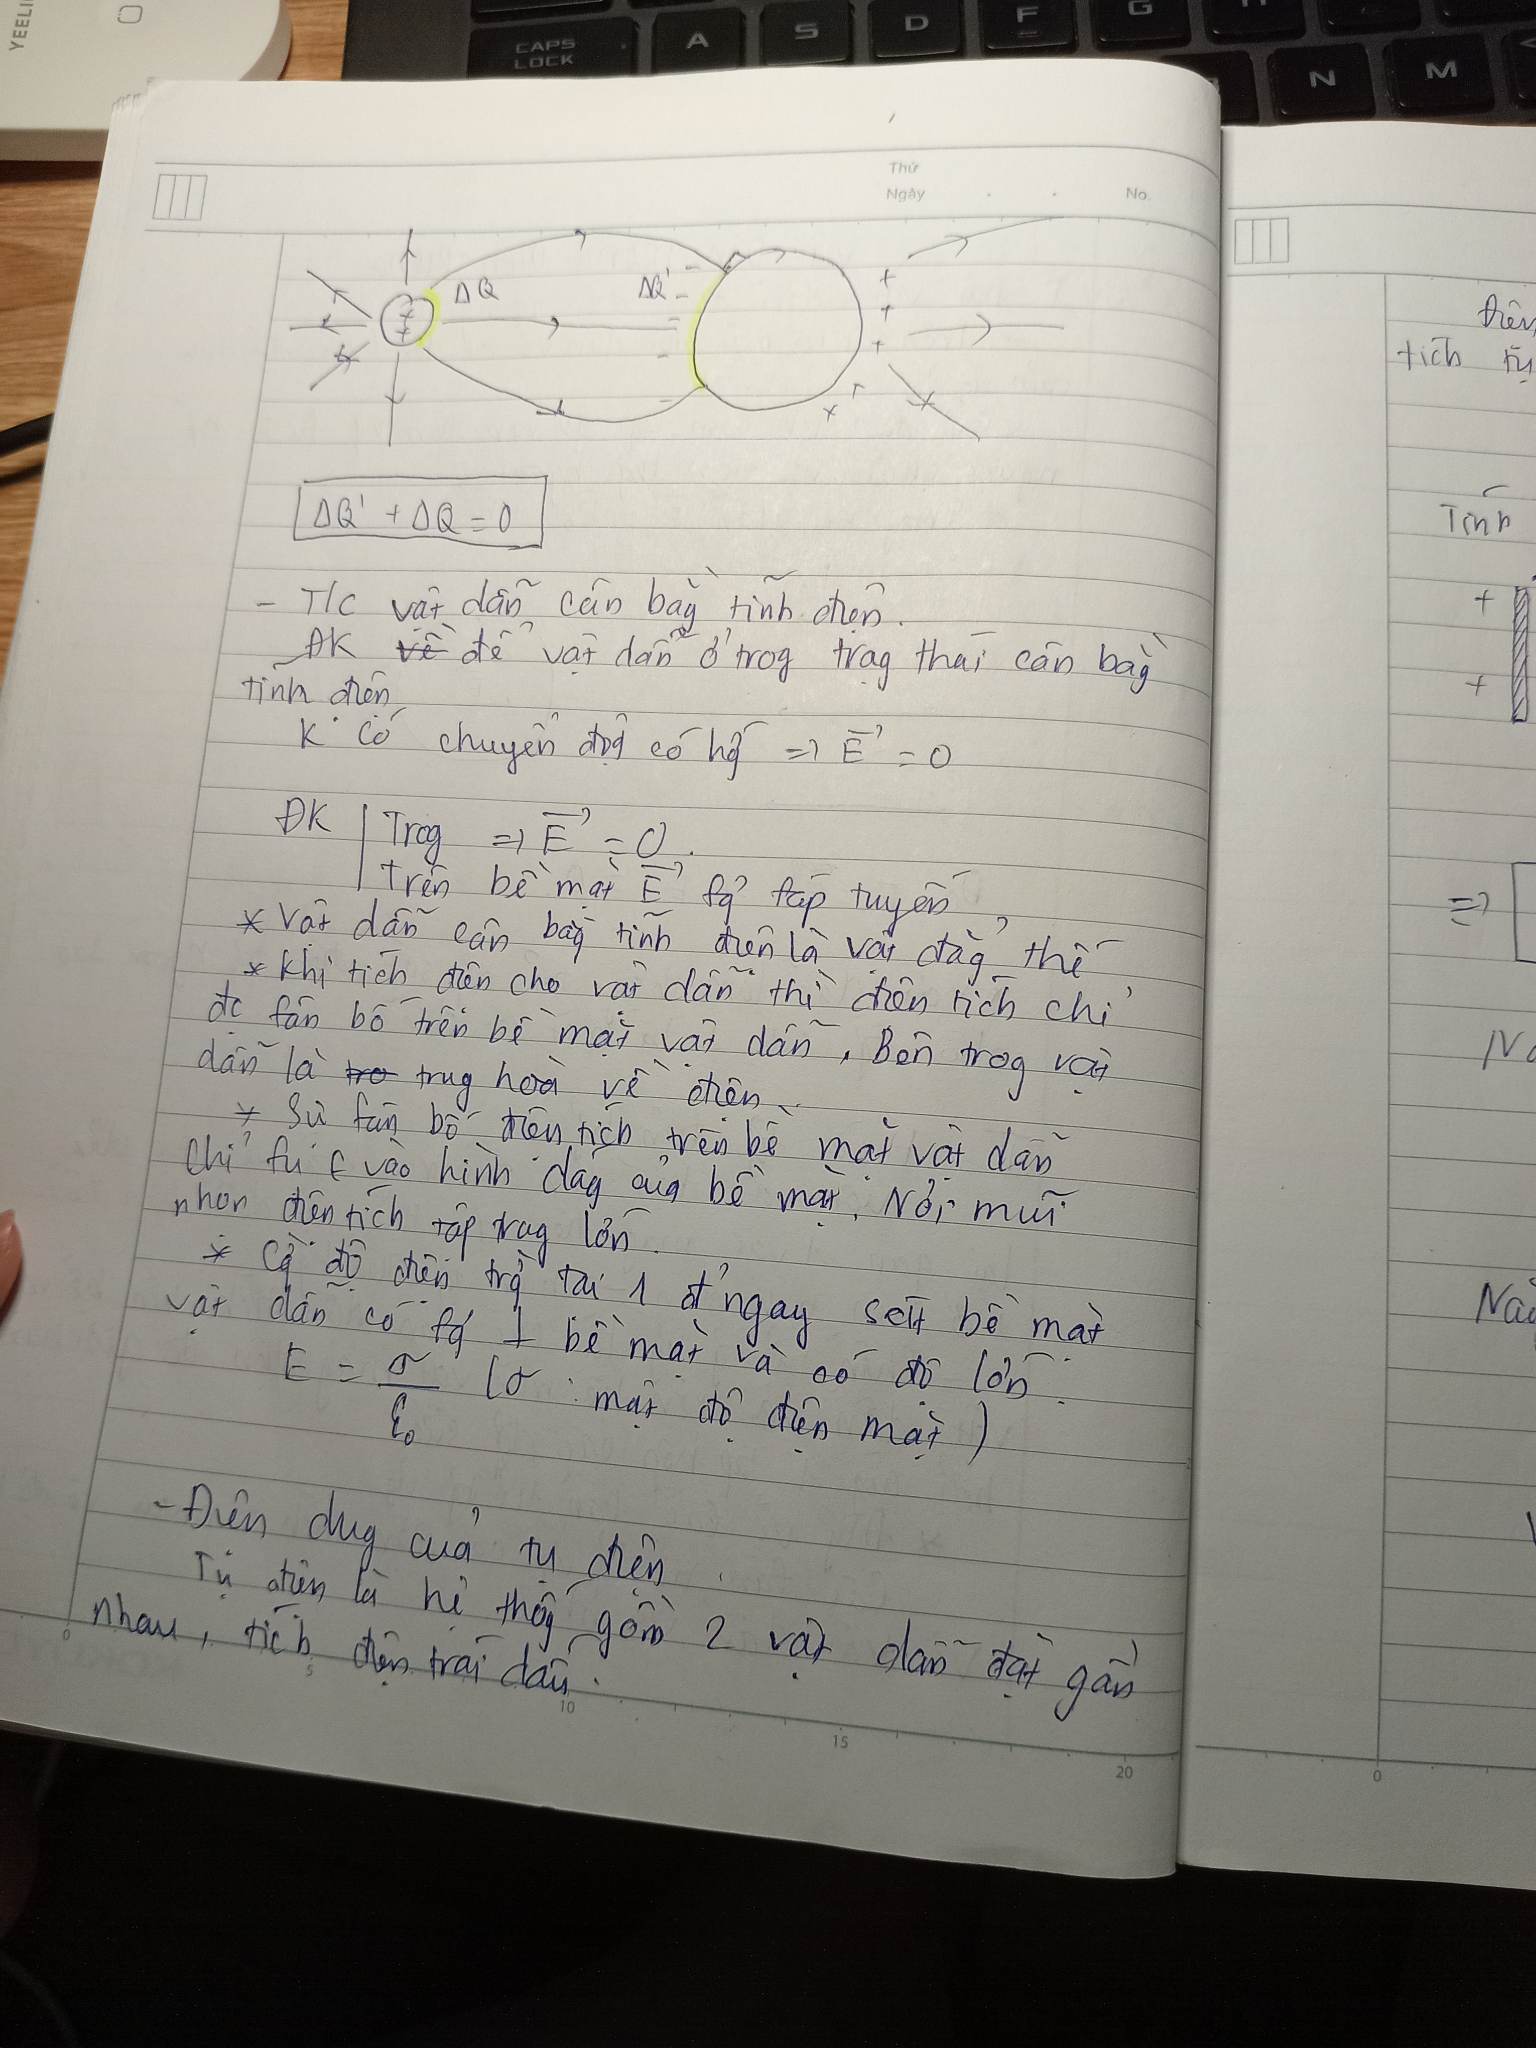 YEELI
CAPS
LOCK
A
S
D
F
G
N
M
Thứ
Ngày . . No.
ΔQ
ΔQ'
ΔQ' + ΔQ = 0
- T/c vật dẫn cân bằg tĩnh điện.
ĐK về để vật dẫn ở trog trạg thái cân bằg
tĩnh điện
K có chuyển độg có hg => E = 0
ĐK Trog => E = 0.
Trên bề mặt E fg tiếp tuyến
* Vật dẫn cân bằg tĩnh điện là vật đẳg thế
* Khi tích điện cho vật dẫn thì điện tích chỉ
đc fân bố trên bề mặt vật dẫn, Bên trog vật
dẫn là tro trug hoà về điện.
* Sự fân bố điện tích trên bề mặt vật dẫn
chỉ fụ t vào hình dág của bề mặt. Nơi mũi
nhọn điện tích tập trug lớn.
* Cg độ điện trg tại 1 đ' ngay sát bề mặt
vật dẫn có fg ⊥ bề mặt và có độ lớn:
E = σ/ε₀ (σ : mật độ điện mặt)
- Điện dug của tụ điện.
Tụ điện là hệ thốg gồm 2 vật dẫn đặt gần
nhau, tích điện trái dấu.
0 5 10 15 20
điện
tích tụ
Tính
+
+
=>
0